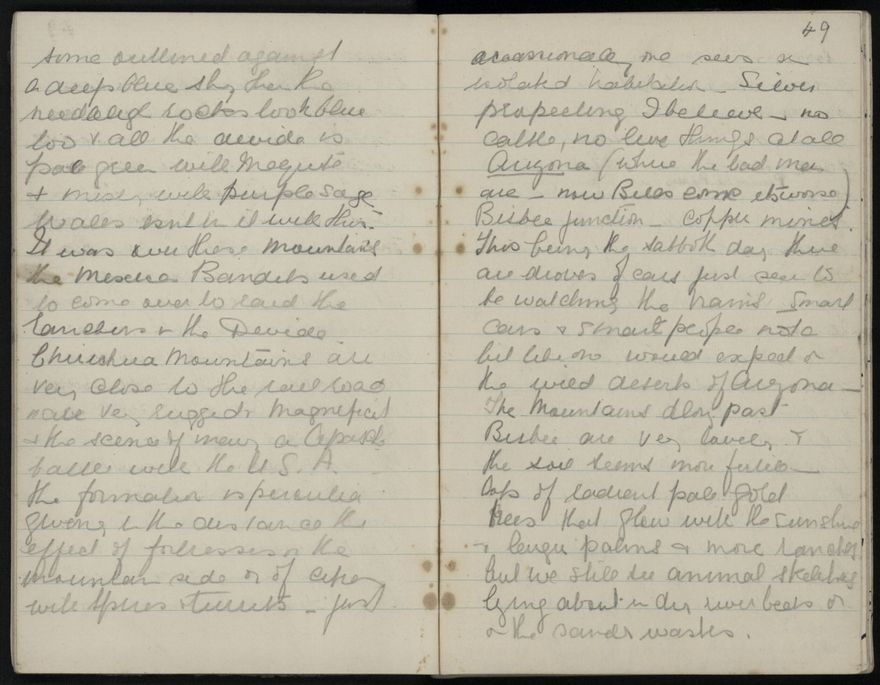 some outlined against
a deep blue sky then the
rocks look blue
too & all the divide is
pale green with Mesquite
& misty with purple sage
Wales isnt in it with this.
It was over these Mountains
the Mexican Bandits used
to come over to raid the
ranchers & the Devide
Chirichua Mountains are
very close to the rail road
& are very rugged & Magnificent
& the scene of many a Apache
battle with the U.S.A.
the formation is peculiar
giving in the distance the
effect of fortresses on the
mountain side or of
with spires & turrets _ just
49
occasionally one sees an
isolated habitation _ Silver
prospecting I believe _ no
cattle, no live things at all
Arizona (where the bad men
are _ now Bills come its worse)
Bisbee junction _ copper mines.
This being the sabboth day there
are droves of cars just seem to
be watching the trains Smart
cars & smart people not a
bit like one would expect in
the wild deserts of Arizona _
The Mountains along past
Bisbee are very lovely &
the soil seems more fertile _
lots of radient pale gold
trees that glow with the sunshine
& palms & more ranches
but we still see animal skeletons
lying about in dry river beds or
on the sandy wastes.